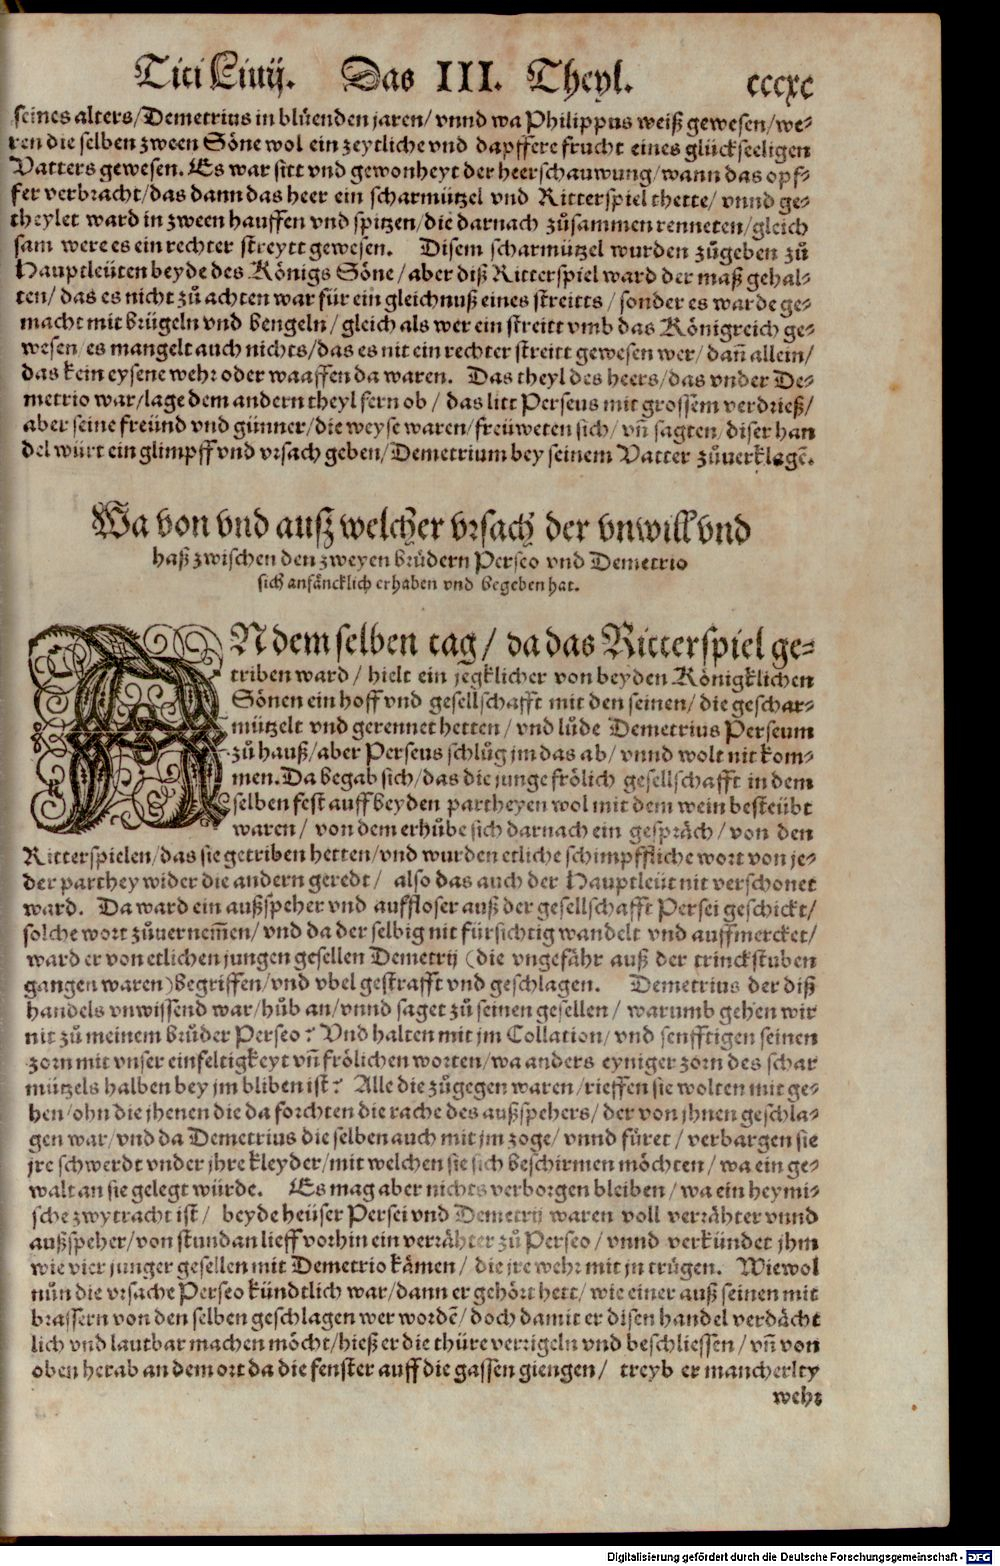 Titi Liuij. Das III. Theyl. cccxc
seines alters/Demetrius in blůenden jaren/ vnnd wa Philippus weiß gewesen/we-
ren die selben zween Söne wol ein zeytliche vnd dapffere frucht eines glückseeligen
Vatters gewesen. Es war sitt vnd gewonheyt der heerschauwung/wann das opf-
fer verbracht/das dann das heer ein scharmützel vnd Ritterspiel thette/ vnnd ge-
theylet ward in zween hauffen vnd spitzen/die darnach zůsammen renneten/gleich
sam were es ein rechter streytt gewesen. Disem scharmützel wurden zůgeben zů
Hauptleüten beyde des Königs Söne/aber diß Ritterspiel ward der maß gehal-
ten/das es nicht zů achten war für ein gleichnuß eines streitts/sonder es warde ge-
macht mit brügeln vnd bengeln/gleich als wer ein streitt vmb das Königreich ge-
wesen/es mangelt auch nichts/das es nit ein rechter streitt gewesen wer/dañ allein/
das kein eysene wehr oder waaffen da waren. Das theyl des heers/das vnder De-
metrio war/lage dem andern theyl fern ob/das litt Perseus mit grossem verdrieß/
aber seine freünd vnd günner/die weyse waren/freüweten sich/vñ sagten/diser han
del würt ein glimpff vnd vrsach geben/Demetrium bey seinem Vatter zůuerklagē.
Wa von vnd ausz welcher vrsach der vnwill vnd
haß zwischen den zweyen brůdern Perseo vnd Demetrio
sich anfäncklich erhaben vnd begeben hat.
AN dem selben tag/ da das Ritterspiel ge-
triben ward/ hielt ein jegklicher von beyden Königklichen
Sönen ein hoff vnd gesellschafft mit den seinen/die geschar-
mützelt vnd gerennet hetten/vnd lůde Demetrius Perseum
zů hauß/aber Perseus schlůg jm das ab/vnnd wolt nit kom-
men. Da begab sich/das die junge frölich gesellschafft in dem
selben fest auff beyden partheyen wol mit dem wein besteübt
waren/von dem erhůbe sich darnach ein gespräch/von den
Ritterspielen/das sie getriben hetten/vnd wurden etliche schimpffliche wort von je-
der parthey wider die andern geredt/ also das auch der Hauptleüt nit verschonet
ward. Da ward ein außspeher vnd auffloser auß der gesellschafft Persei geschickt/
solche wort zůuernem̃en/vnd da der selbig nit fürsichtig wandelt vnd auffmercket/
ward er von etlichen jungen gesellen Demetrij (die vngefähr auß der trinckstuben
gangen waren) begriffen/vnd vbel gestrafft vnd geschlagen. Demetrius der diß
handels vnwissend war/hůb an/vnnd saget zů seinen gesellen/warumb gehen wir
nit zů meinem brůder Perseo? Vnd halten mit jm Collation/vnd senfftigen seinen
zorn mit vnser einfeltigkeyt vñ frölichen worten/wa anders eyniger zorn des schar
mützels halben bey jm bliben ist? Alle die zůgegen waren/rieffen sie wolten mit ge-
hen/ohn die jhenen die da forchten die rache des außspehers/der von jhnen geschla-
gen war/vnd da Demetrius die selben auch mit jm zoge/vnnd füret/verbargen sie
jre schwerdt vnder jhre kleyder/mit welchen sie sich beschirmen möchten/wa ein ge-
walt an sie gelegt würde. Es mag aber nichts verborgen bleiben/wa ein heymi-
sche zwytracht ist/ beyde heüser Persei vnd Demetrij waren voll verrähter vnnd
außspeher/von stund an lieff vorhin ein verrähter zů Perseo/vnnd verkündet jhm
wie vier junger gesellen mit Demetrio kämen/die jre wehr mit jn trůgen. Wiewol
nůn die vrsache Perseo kündtlich war/dann er gehört hett/wie einer auß seinen mit
brassern von den selben geschlagen wer wordē/doch damit er disen handel verdächt
lich vnd lautbar machen möcht/hieß er die thüre verrigeln vnd beschliessen/vñ von
oben herab an dem ort da die fenster auff die gassen giengen/ treyb er mancherley
wehr
Digitalisierung gefördert durch die Deutsche Forschungsgemeinschaft - DFG